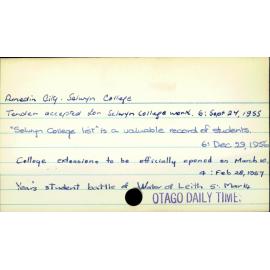 Dunedin City: Selwyn College
Tender accepted for Selwyn College work. 6: Sept 24, 1955
"Selwyn College list" is a valuable record of students.
6: Dec 29, 1956
College extensions to be officially opened on March 10,
4: Feb 28, 1967
Year's student battle of Water of Leith 5: Mar 14
OTAGO DAILY TIME